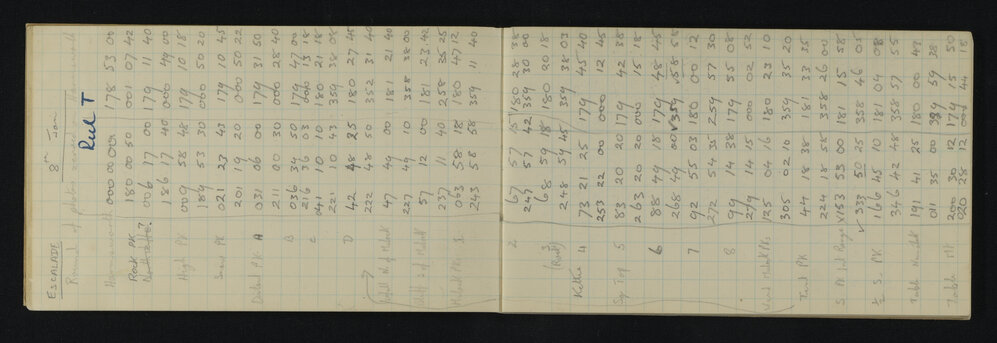 ESCALADE 8th Jan
Round of photos
Real T
000 00 00 178 53 00
Rock PK 180 00 50 001 07 42
006 17 00 179 11 40
186 17 40 000 49 00
High PK 009 58 48 179 10 18
189 53 30 000 50 20
Snow PK 021 23 43 179 10 45
201 19 20 000 50 22
Distant PK A 031 06 00 179 31 50
211 00 30 000 28 40
B 036 34 50 179 47 00
216 36 03 000 13 18
C 041 10 10 180 21 18
221 10 43 359 38 08
D 42 48 25 180 27 45
222 48 50 352 31 40
47 49 00 181 21 40
227 49 10 358 38 00
57 12 00 181 23 42
237 11 40 258 35 25
063 58 18 180 47 12
243 58 58 359 11 40
2 67 57 15 180 28 38
247 57 42 359 30 00
3 68 59 18 180 20 18
(Rock) 248 59 45 359 38 03
Kettle 4 73 21 25 179 45 40
253 22 00 000 12 45
Top 5 83 20 20 179 42 38
263 20 20 000 15 18
6 88 49 18 179 48 45
268 49 00 359 58 58
7 92 55 03 180 00 12
272 54 35 259 57 30
8 99 14 38 179 55 08
279 14 15 000 02 52
125 04 16 180 23 10
305 02 10 359 35 20
PK 44 18 38 181 33 35
224 18 58 358 26 00
Range 153 53 00 181 15 58
333 50 25 358 46 05
PK 166 45 10 181 04 08
346 42 48 358 57 55
Table 191 41 25 180 00 49
011 35 00 359 59 38
Table Mt 200 30 12 179 15 50
020 28 12 000 44 18